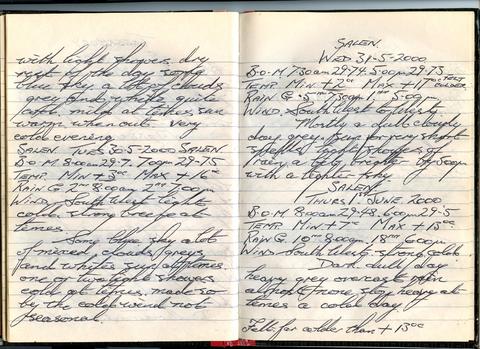 with light showers dry
rest of the day some
blue sky a lot of clouds
grey and white quite
calm mild at times sun
warm when out very
cold evening
SALEN TUES 30-5-2000 SALEN
B-O-M 8:00am 29-7. 7:00pm 29-75
TEMP. MIN + 3°C MAX + 16°C
RAIN G 2mm 8:00am 2mm 7:00pm
WIND South West light
colder strong breeze at
times.
Some blue sky a lot
of mixed clouds greys
and whites sun at times
one or two light showers
cold at times made so
by the cold wind not
seasonal.
SALEN
WED 31-5-2000
B-O-M 7:30am 29-74. 5:00pm 29-73
TEMP MIN + MAX + FELT COLDER
RAIN G 5mm 7:30am 5:00pm
WIND South West
Mostly a dull cloudy
day grey sun for very short
spells light showers of
rain, a bit brighter by 5:00pm
with a lighter sky
SALEN
THURS 1st JUNE 2000
B-O-M 8:00am 29-48. 6:00pm 29-5
TEMP MIN + 7°C MAX + 13°C
RAIN G. 10mm 8:00am 18mm 6:00pm
WIND South West strong cold.
Dark dull day
heavy grey overcast rain
almost none stop heavy at
times a cold day.
Felt far colder than + 13°C